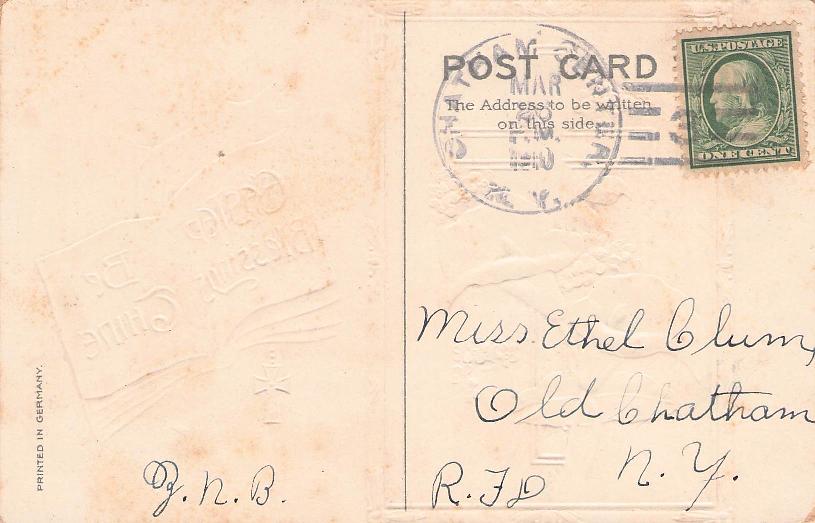 POST CARD
The Address to be written
on this side.
CHATHAM CENTER
MAR
N. Y.
U.S. POSTAGE
ONE CENT
Easter
Blessing
Be
Thine
Miss. Ethel Clum,
Old Chatham
N. Y.
R.F.D
Z. N. B.
PRINTED IN GERMANY.